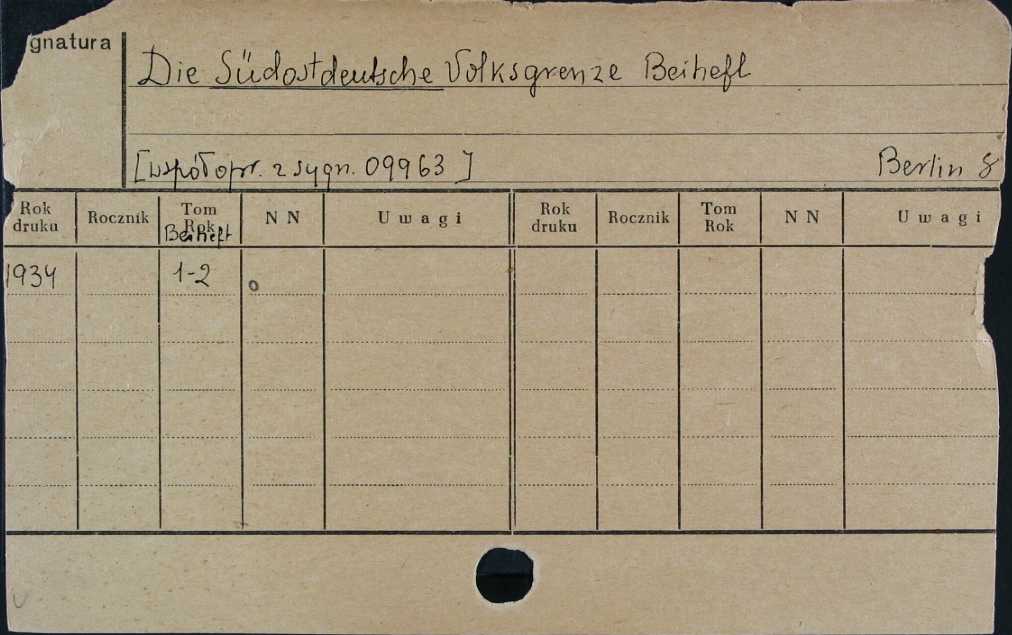 gnatura
Die Südostdeutsche Volksgrenze Beiheft
[współopr. z sygn. 09963] Berlin 8
Rok druku Rocznik Tom Rok Beiheft N N Uwagi Rok druku Rocznik Tom Rok N N Uwagi
1934 1-2